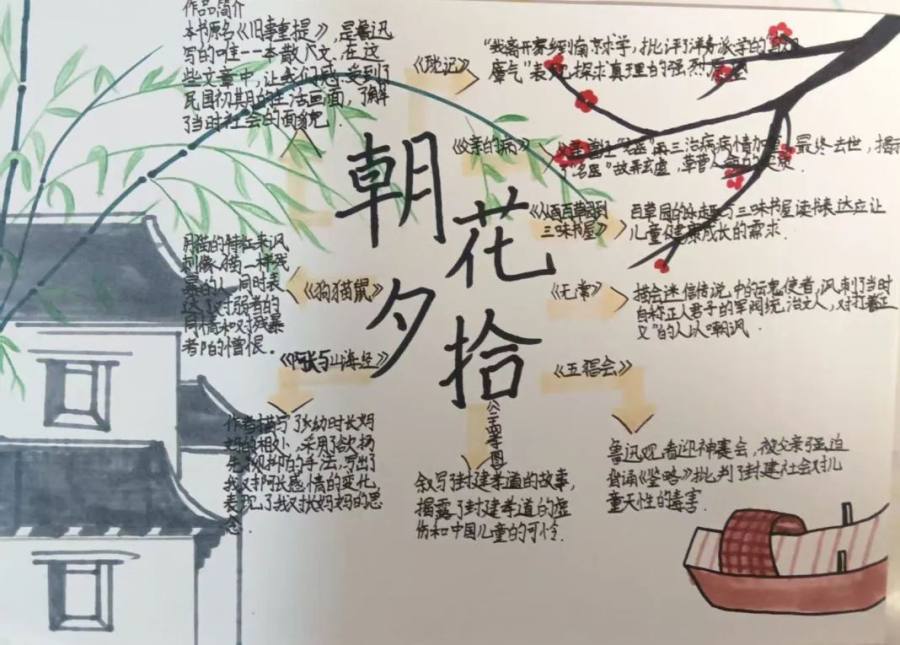 作品简介
本书原名《旧事重提》,是鲁迅
写的唯一一本散文,在这
些文章中,让我们感受到了
民国初期的生活画面,了解
了当时社会的面貌.
朝花夕拾
《琐记》
"我离开家乡到南京求学,批评了洋务派学的
腐气"表现探求真理的强烈
《父亲的病》
"名医"再三治病病情加重,最终去世,揭示
了"名医"故弄玄虚,草菅人命的
《从百草园到
三味书屋》
百草园的乐趣与三味书屋读书表达应让
儿童健康成长的需求.
《无常》
描绘迷信传说中的勾魂使者,讽刺了当时
自称正人君子的军阀统治文人,对打着正
义"的人以嘲讽.
《五猖会》
鲁迅观看迎神赛会,被父亲强迫
背诵《鉴略》批判了封建社会对儿
童天性的毒害.
《二十四孝图》
叙写封建孝道的故事,
揭露了封建孝道的虚
伪和中国儿童的可怜.
《狗猫鼠》
用猫的特征来讽
刺像猫一样残
暴的人,同时表
达了对弱者的
同情和对残暴
者的憎恨.
《阿长与山海经》
作者描写了幼时长妈
妈的相处,采用了欲扬
先抑的手法,写出了
我对阿长感情的变化,
表现了我对长妈妈的思
念.